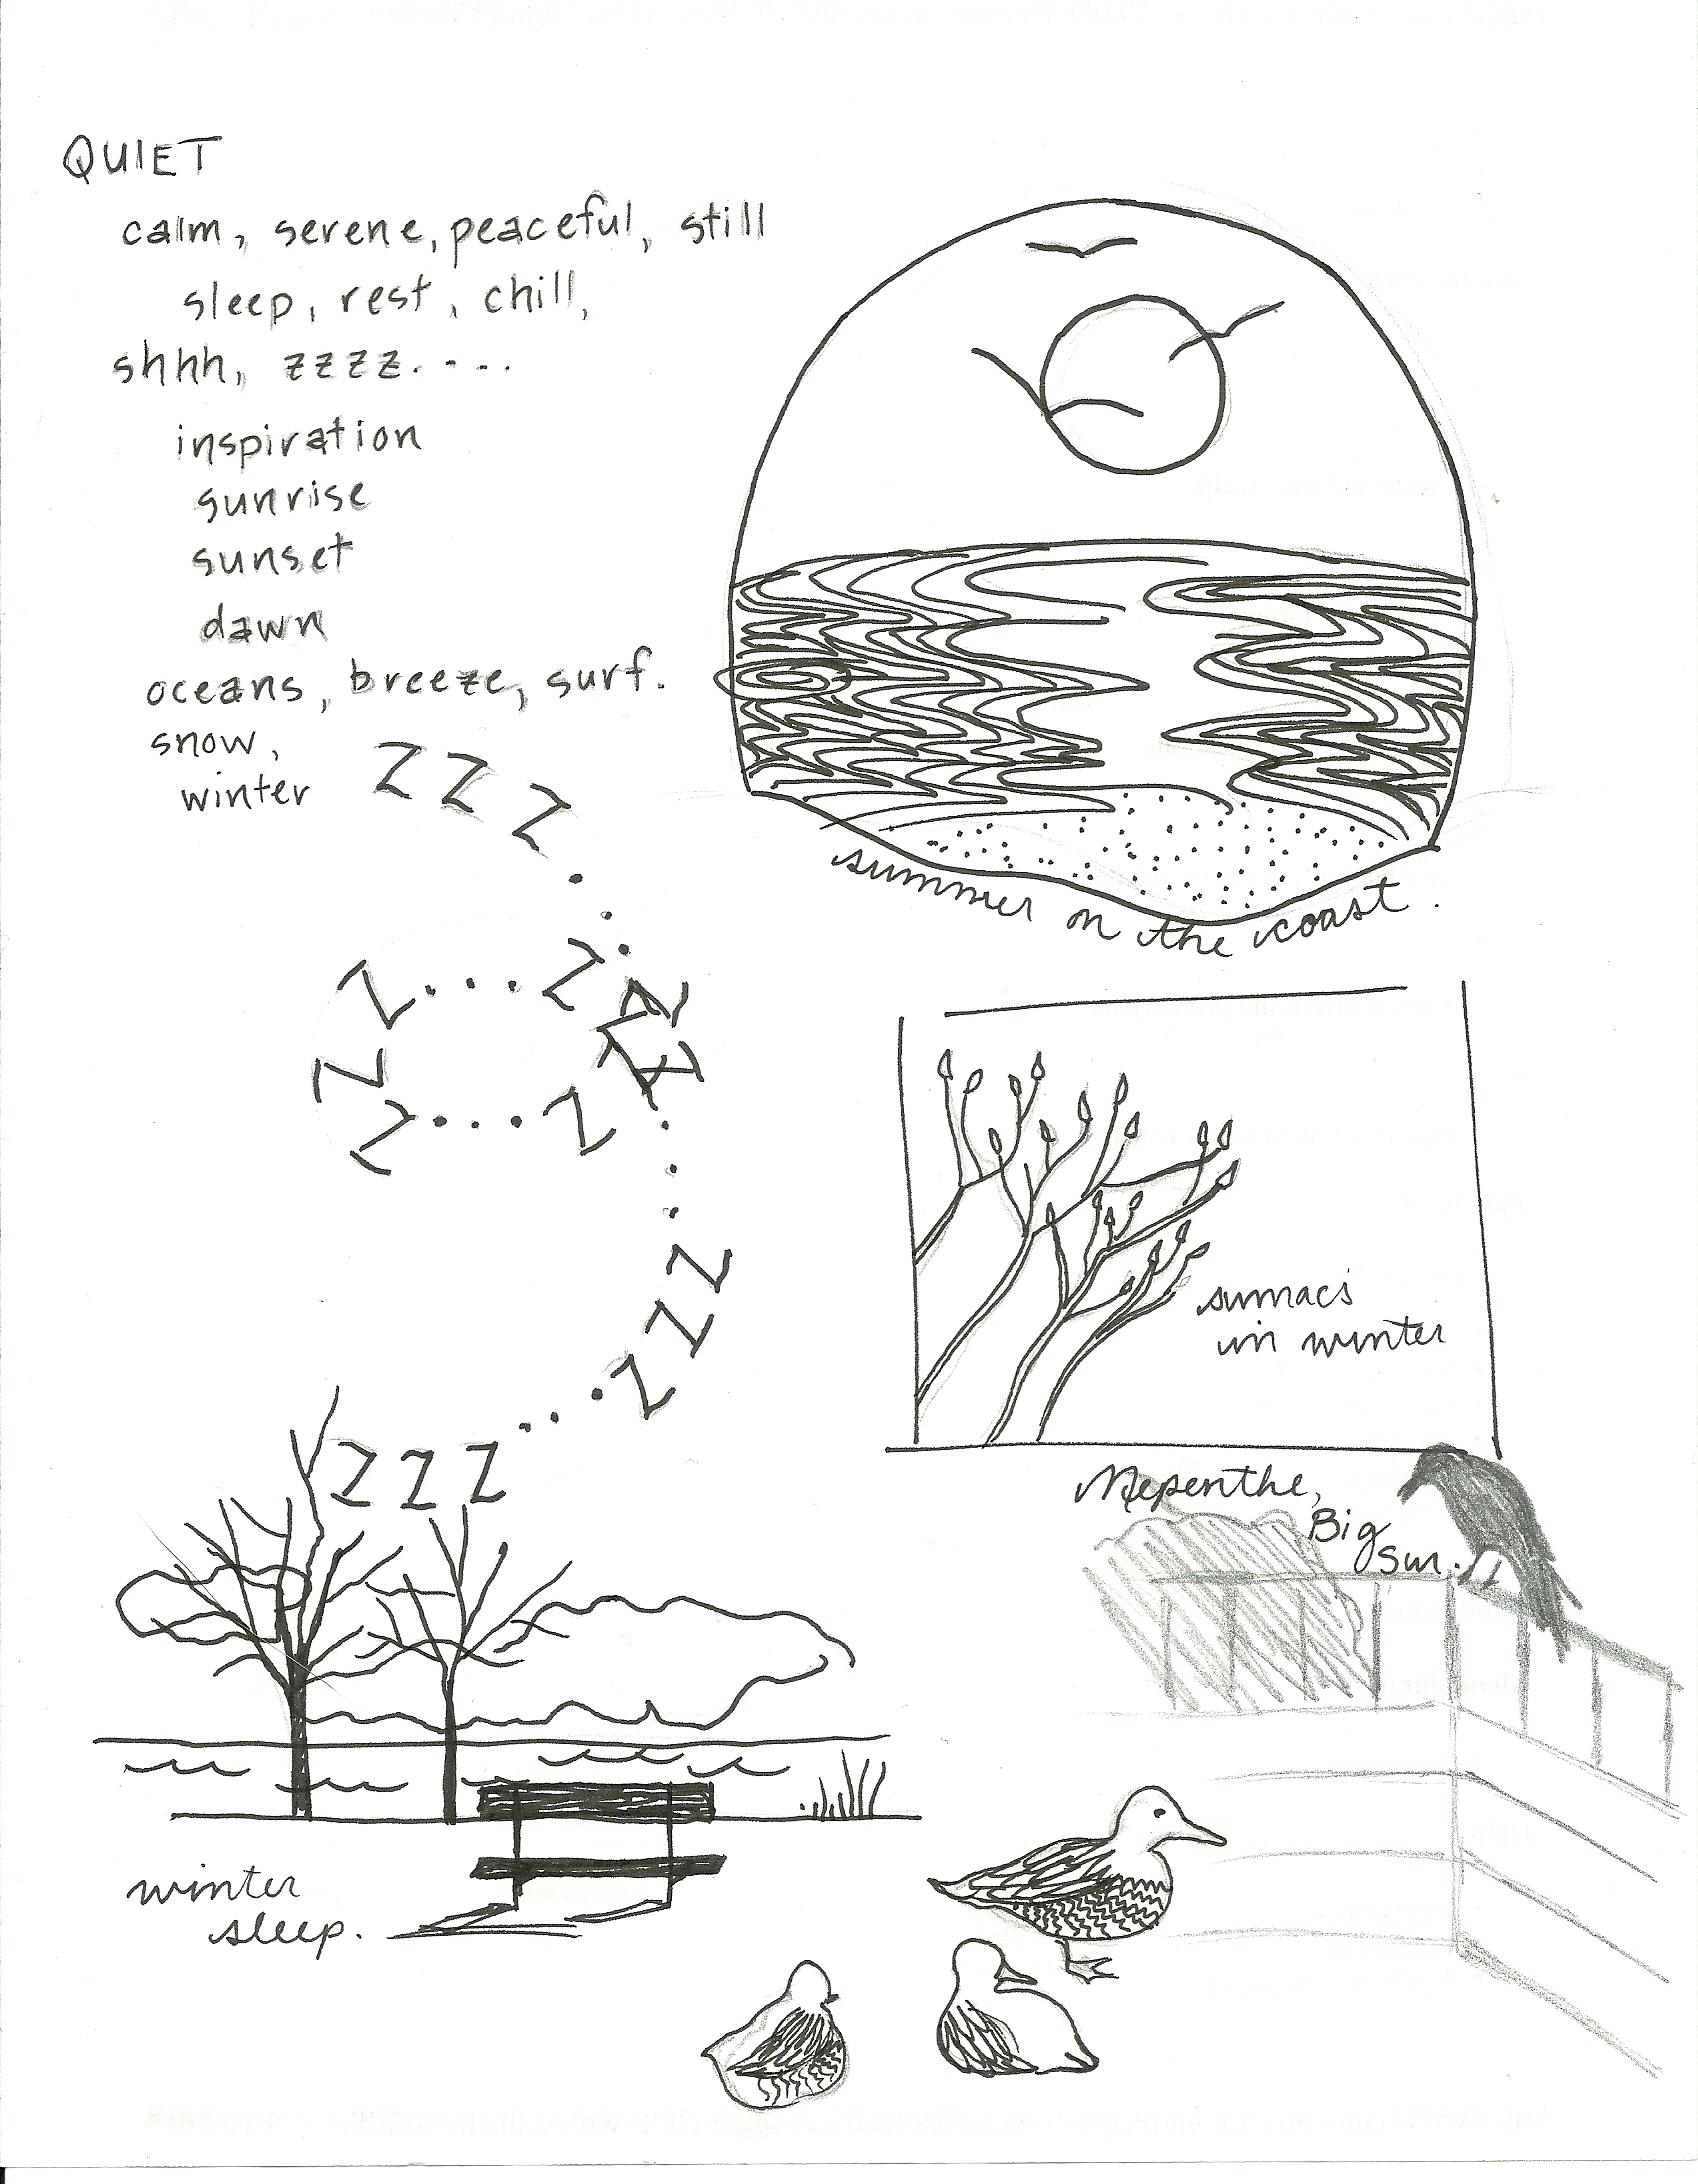 QUIET
calm, serene, peaceful, still
sleep, rest, chill,
shhh, zzzz....
inspiration
sunrise
sunset
dawn
oceans, breeze, surf.
snow,
winter
Z Z Z
. . .
Z...Z
Z
Z...Z
Z
Z
Z
. . .
Z
Z
Z
...
Z Z Z
summer on the coast.
sumacs
in winter
Nepenthe,
Big
Sur.
winter
sleep.